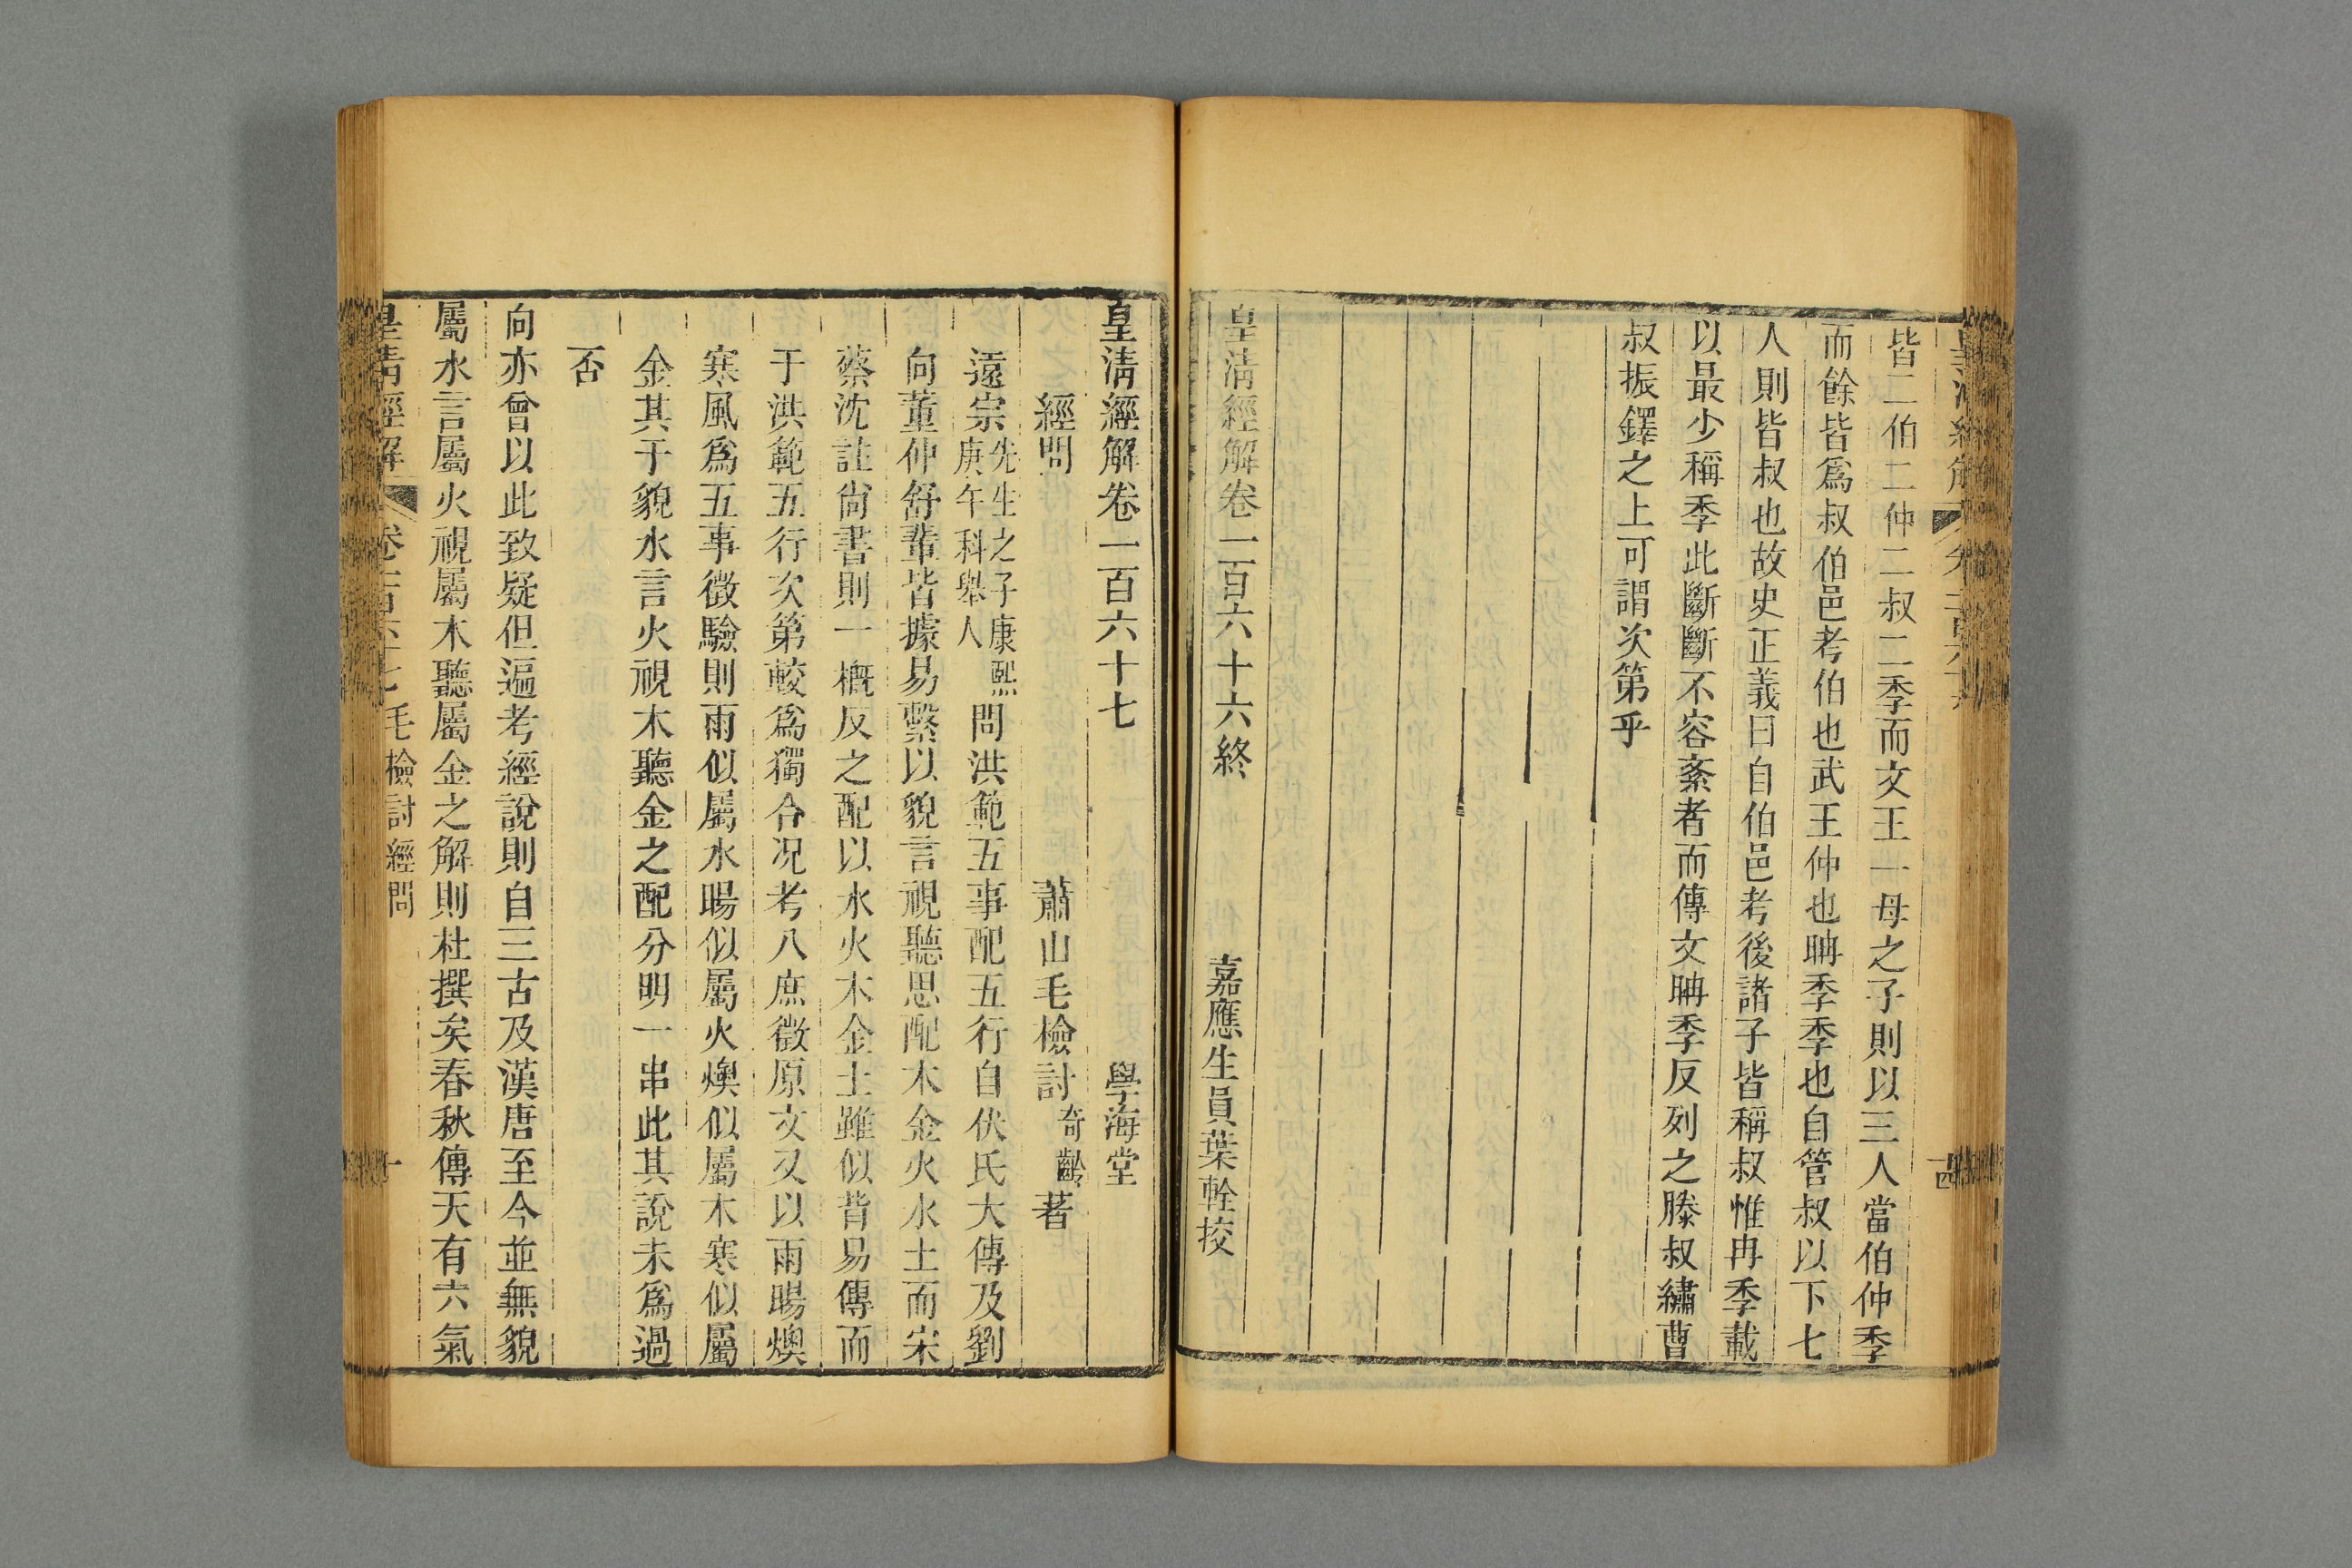 皆二伯二仲二叔二季而文王一母之子則以三人當伯仲季
而餘皆爲叔伯邑考伯也武王仲也聃季季也自管叔以下七
人則皆叔也故史正義曰自伯邑考後諸子皆稱叔惟冉季載
以最少稱季此斷斷不容紊者而傳文聃季反列之滕叔繡曹
叔振鐸之上可謂次第乎
皇淸經解卷一百六十六終
嘉應生員葉軨挍
皇淸經解卷一百六十七
學海堂
經問
蕭山毛檢討奇齡著
遠宗先生之子康熙庚午科舉人問洪範五事配五行自伏氏大傳及劉
向董仲舒輩皆據易繫以貌言視聽思配木金火水土而宋
蔡沈註尙書則一槪反之配以水火木金土雖似背易傳而
于洪範五行次第較爲獨合况考八庶徵原文又以雨暘燠
寒風爲五事徵驗則雨似屬水暘似屬火燠似屬木寒似屬
金其于貌水言火視木聽金之配分明一串此其說未爲過
否
向亦曾以此致疑但遍考經說則自三古及漢唐至今並無貌
屬水言屬火視屬木聽屬金之解則杜撰矣春秋傳天有六氣
皇淸經解
毛檢討經問